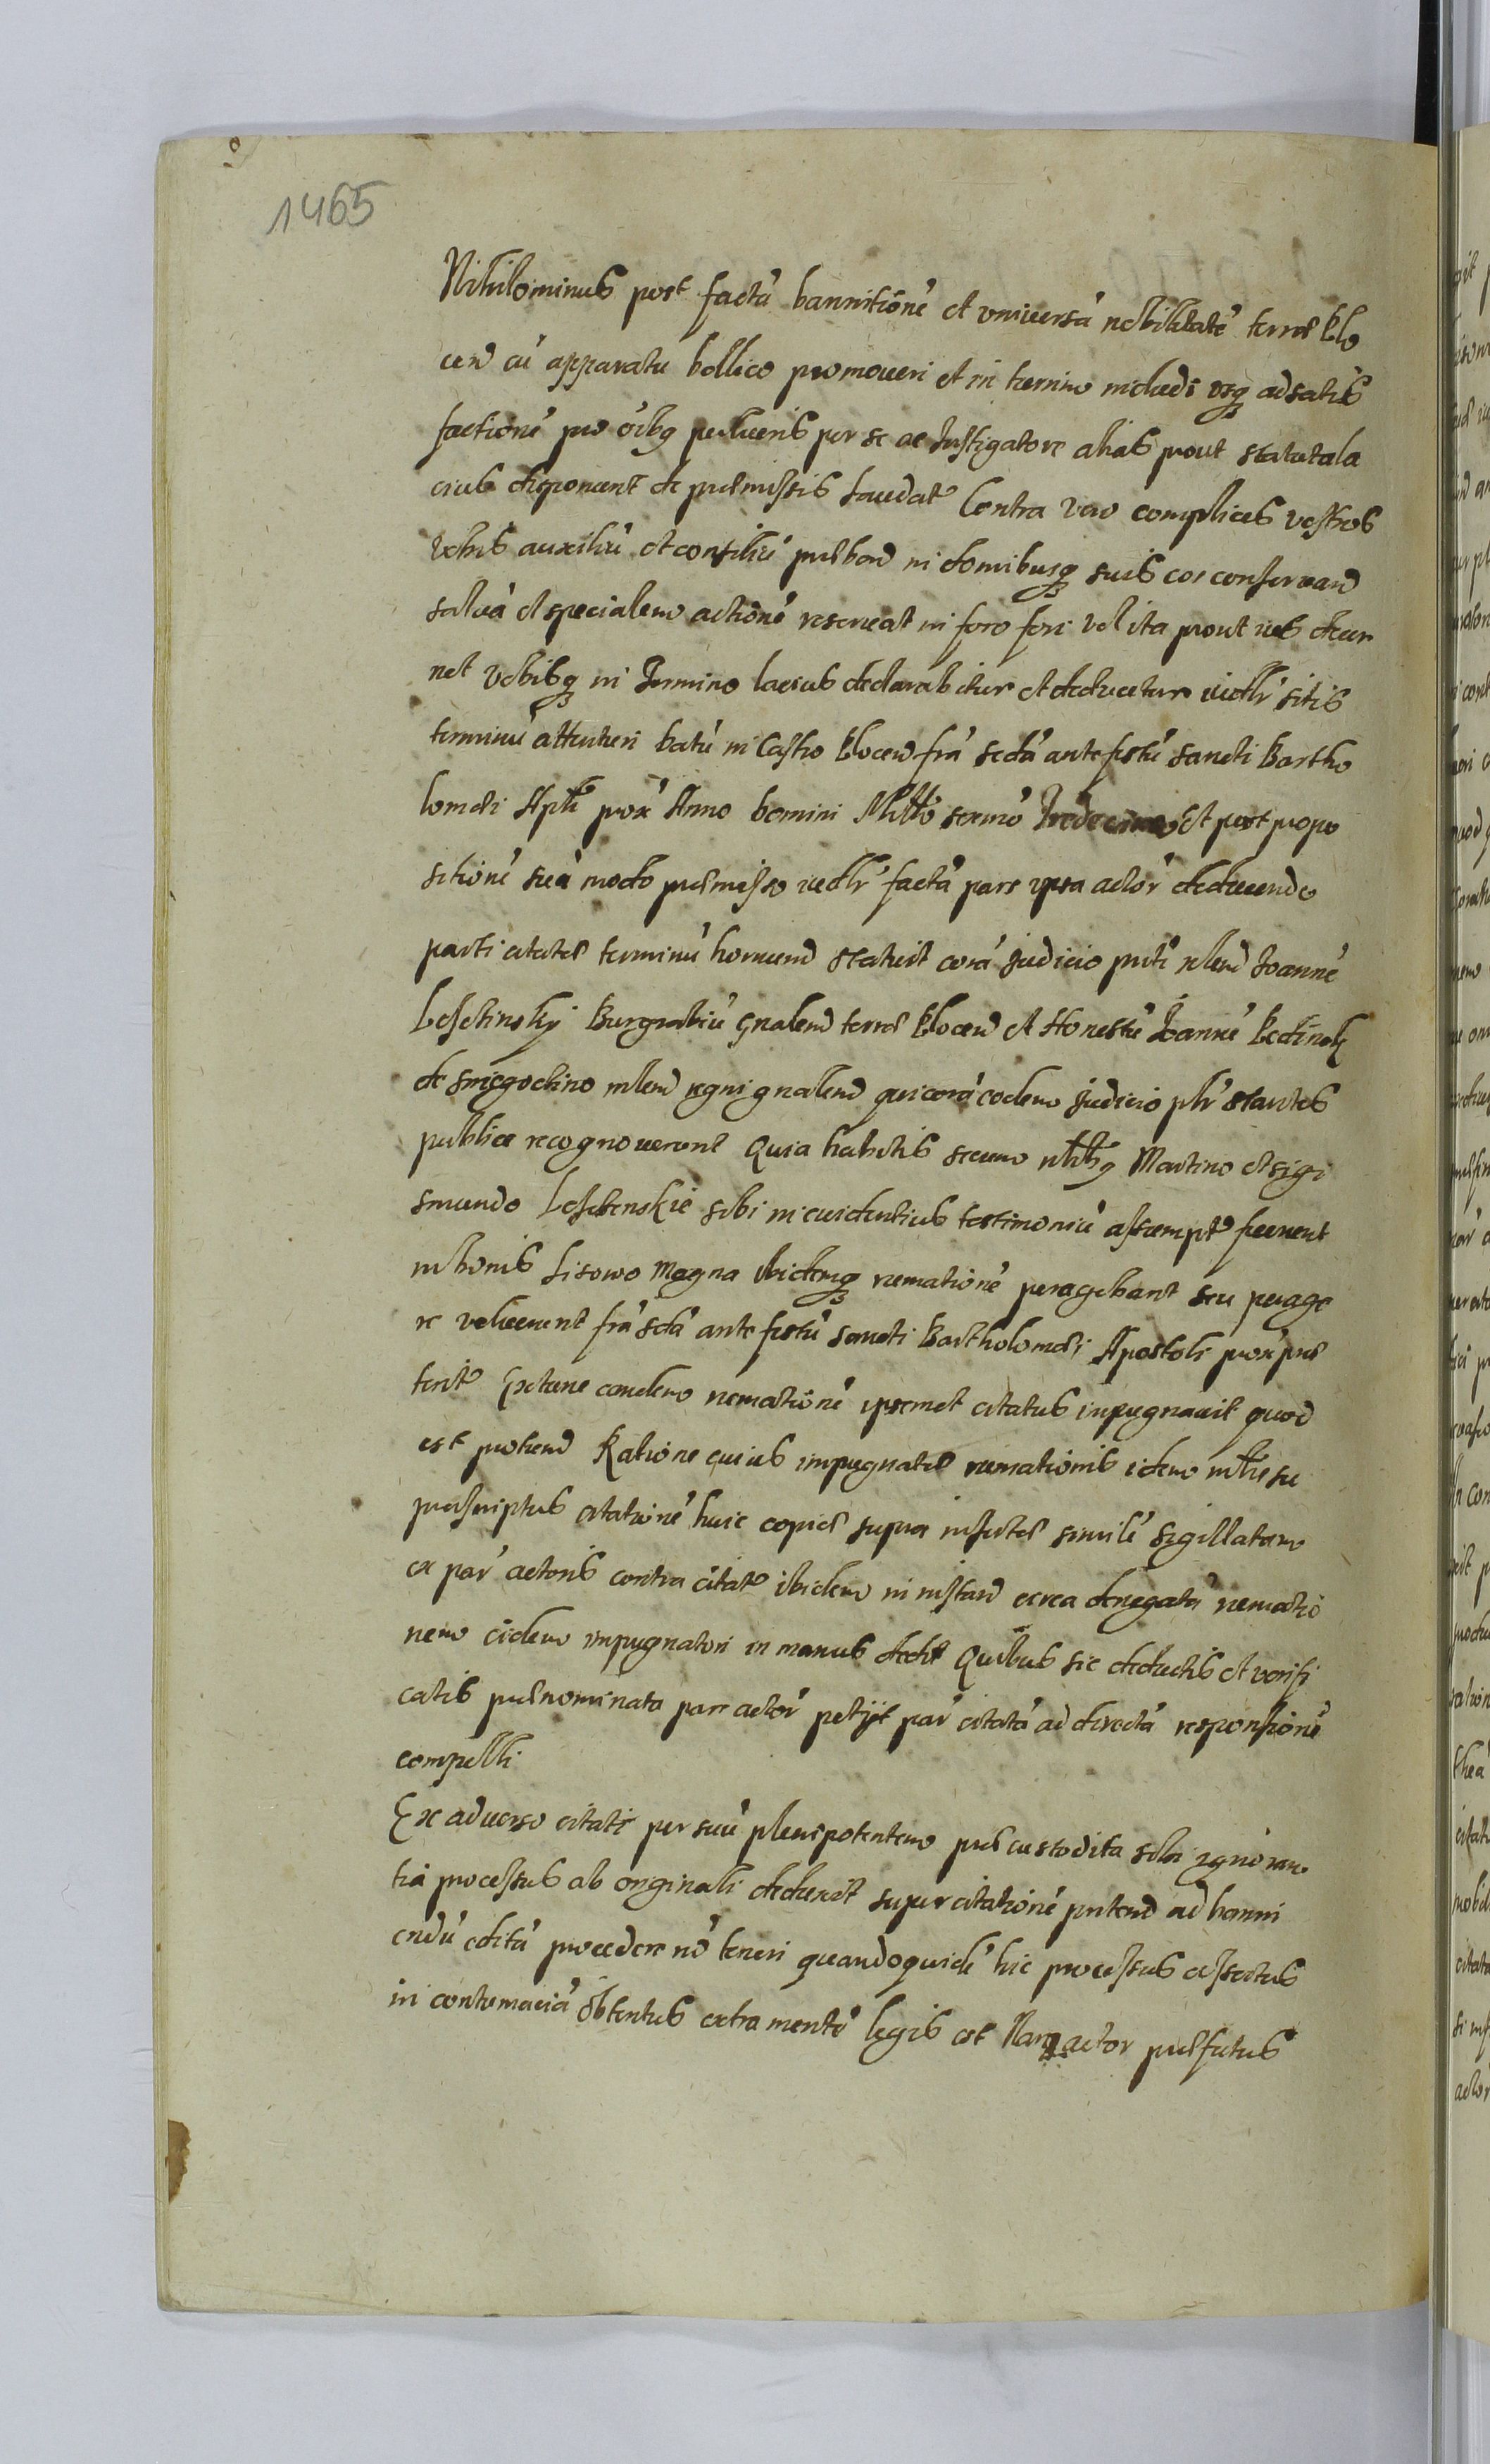 1465
Nihilominus post factá bannitioné et vniuersá nobilitaté terræ Plo
cen cú apparatu bellico promoueri et in termino includi vsq ad satis
factioné pro oibq pecunris per se ac Instigatore alias prout statuta la
cius disponunt de præmissis laudat Contra vero complices vestros
vobis auxiliú et consiliú præbend in domibusq suis conseruand
saluá et specialem actioné reseruat in foro fori vel ita prout ius decer
net vobisq in Termino lacius declarabitur et deducetur iudlr sitis
terminú attenturi Datú in Castro Plocen fra secdá ante festú Sancti Bartho
lomæi Apli prox Anno Domini Millo sexmo Tredecimo Et post propo
sitioné suá modo præmisso iudlr factá pars ipsa actor deducendo
parti citatæ terminú hornund statuit corá Judicio pnti nlem Joanné
Leschinsky Burgrabiú gnalem terræ Plocen et Honestú Joanné
de Smiegochino mlem regni gnalem qui corá eodem Judicio plr stantes
publice recognouerunt Quia habitis secum nlibq Martino et Sigi
smundo Leschenskie sibi in euidentius testimoniú assumpt fuerunt
in bonis Lisowo Magna ibidemq remationé peragebant seu perage
re voluerunt fra scdá ante festú Sancti Bartholomæi Apostoli prox præ
terit Extunc eandem remationé ipsemet citatus impugnauit quod
est protend Ratione cuius impugnatæ remationis idem mlris su
prascriptus citationé huic copiæ supra insertæ similé sigillatam
ex par actoris contra citat ibidem in instand circa denegatá rematio
nem eidem impugnatori in manus dedit Quibus sic deductis et verifi
catis prænominata pars actor petijt par citatá ad directá responsioné
compelli
Ex aduerso citati per suú plenipotentem præcustodita sibi ignoran
tia processus ab originali deduxit super citationé pntend ad banni
endú editá procedere nó teneri quandoquidé hic processus assertus
in contumaciá obtentus extra menté legis est Nam actor præfatus